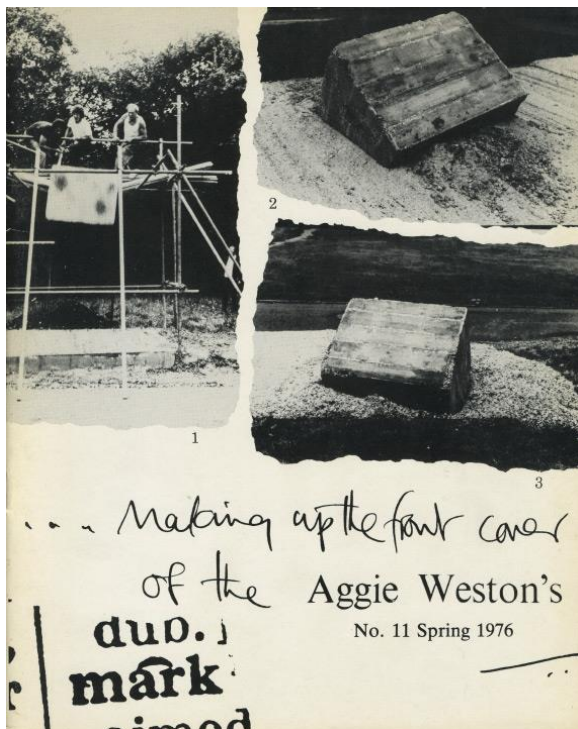 2
1
3
.... Making up the front cover
of the Aggie Weston's
No. 11 Spring 1976
dup.
mark
aimed